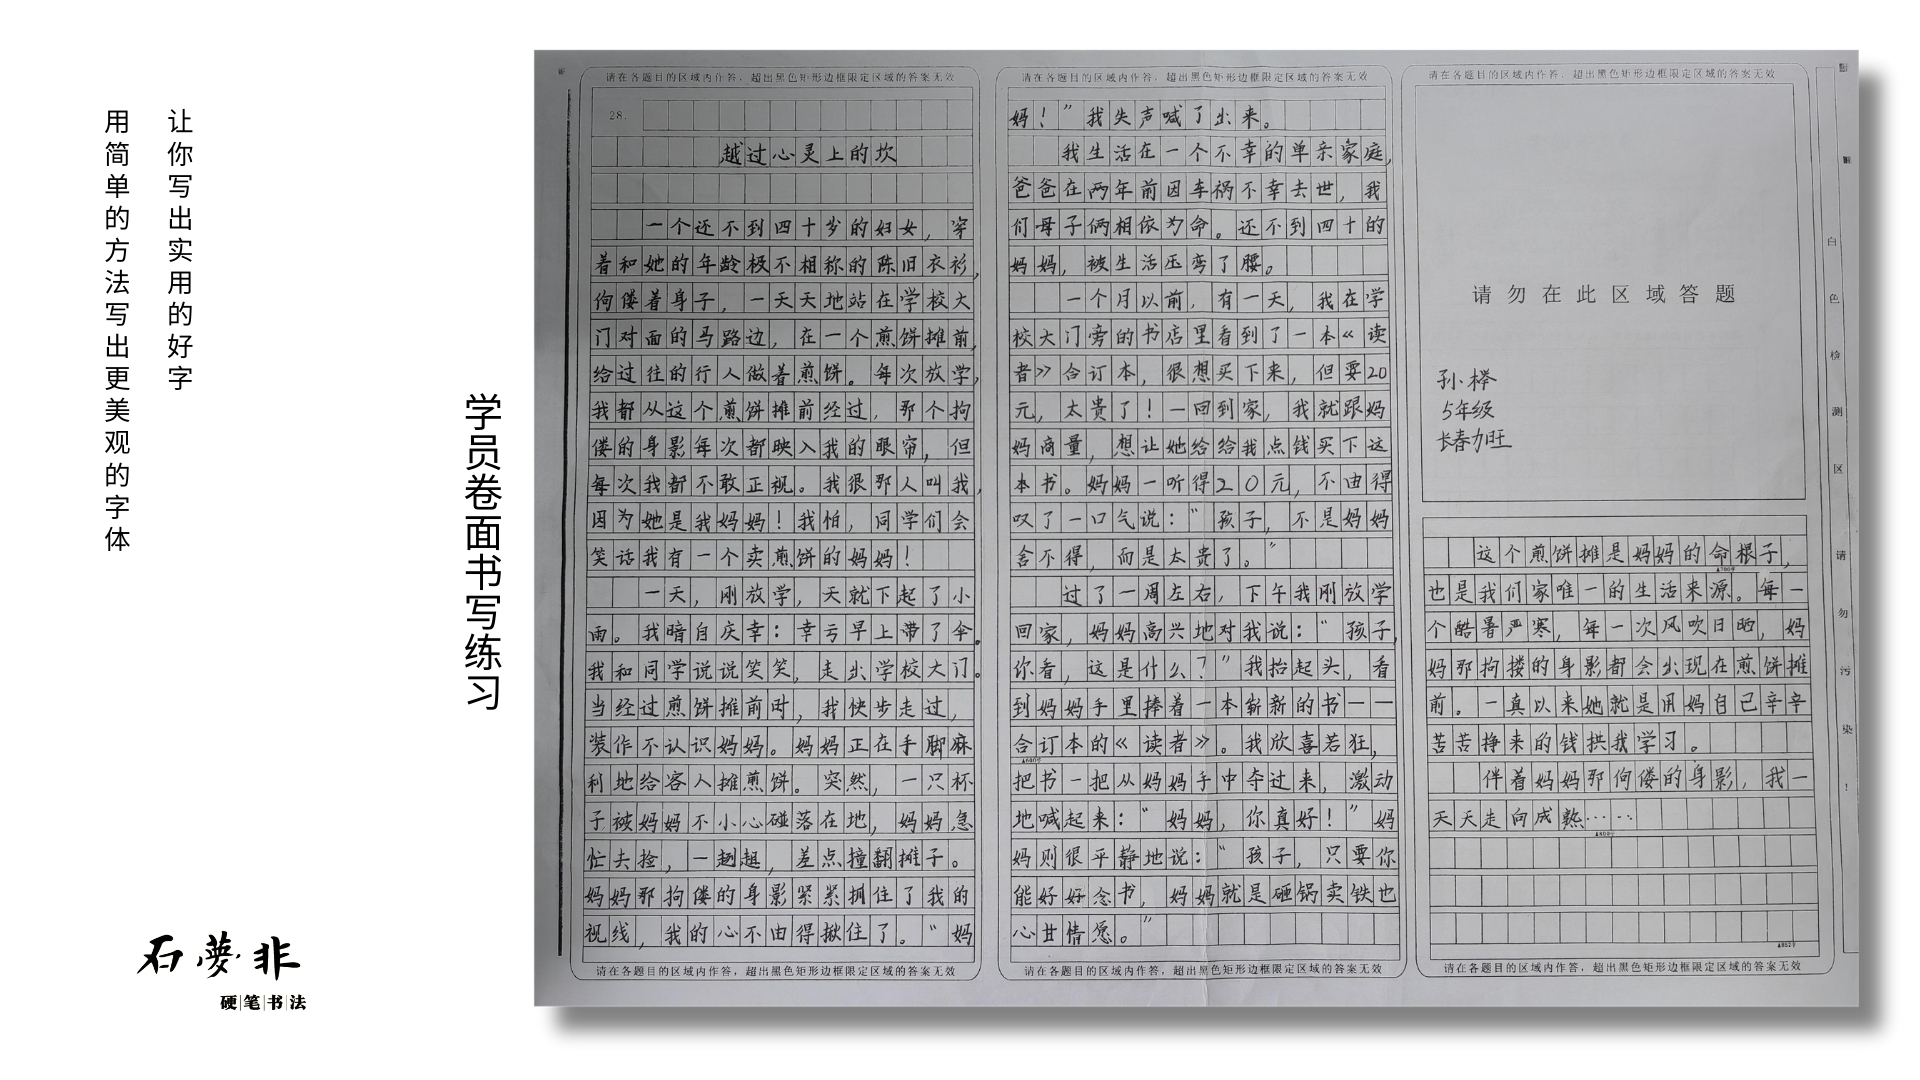 让你写出实用的好字
用简单的方法写出更美观的字体
学员卷面书写练习
石夢非
硬笔书法
请在各题目的区域内作答，超出黑色矩形边框限定区域的答案无效
28.
越过心灵上的坎
一个还不到四十岁的妇女，穿
着和她的年龄极不相称的陈旧衣衫，
佝偻着身子，一天天地站在学校大
门对面的马路边，在一个煎饼摊前，
给过往的行人做着煎饼。每次放学，
我都从这个煎饼摊前经过，那个拘
偻的身影每次都映入我的眼帘，但
每次我都不敢正视。我很那人叫我，
因为她是我妈妈！我怕，同学们会
笑话我有一个卖煎饼的妈妈！
一天，刚放学，天就下起了小
雨。我暗自庆幸：幸亏早上带了伞。
我和同学说说笑笑，走出学校大门。
当经过煎饼摊前时，我快步走过，
装作不认识妈妈。妈妈正在手脚麻
利地给客人摊煎饼。突然，一只杯
子被妈妈不小心碰落在地，妈妈急
忙去捡，一趔趄，差点撞翻摊子。
妈妈那拘偻的身影紧紧抓住了我的
视线，我的心不由得揪住了。“妈
请在各题目的区域内作答，超出黑色矩形边框限定区域的答案无效
请在各题目的区域内作答，超出黑色矩形边框限定区域的答案无效
妈！”我失声喊了出来。
我生活在一个不幸的单亲家庭，
爸爸在两年前因车祸不幸去世，我
们母子俩相依为命。还不到四十的
妈妈，被生活压弯了腰。
一个月以前，有一天，我在学
校大门旁的书店里看到了一本《读
者》合订本，很想买下来，但要20
元，太贵了！一回到家，我就跟妈
妈商量，想让她给给我点钱买下这
本书。妈妈一听得20元，不由得
叹了一口气说：“孩子，不是妈妈
舍不得，而是太贵了。”
过了一周左右，下午我刚放学
回家，妈妈高兴地对我说：“孩子，
你看，这是什么？”我抬起头，看
到妈妈手里捧着一本崭新的书——
合订本的《读者》。我欣喜若狂，
▲600字
把书一把从妈妈手中夺过来，激动
地喊起来：“妈妈，你真好！”妈
妈则很平静地说：“孩子，只要你
能好好念书，妈妈就是砸锅卖铁也
心甘情愿。”
请在各题目的区域内作答，超出黑色矩形边框限定区域的答案无效
请在各题目的区域内作答，超出黑色矩形边框限定区域的答案无效
请勿在此区域答题
孙榉
5年级
长春力旺
这个煎饼摊是妈妈的命根子，
▲700字
也是我们家唯一的生活来源。每一
个酷暑严寒，每一次风吹日晒，妈
妈那拘搂的身影都会出现在煎饼摊
前。一真以来她就是用妈自己辛辛
苦苦挣来的钱拱我学习。
伴着妈妈那佝偻的身影，我一
天天走向成熟……
▲800字
▲852字
请在各题目的区域内作答，超出黑色矩形边框限定区域的答案无效
白色检测区请勿污染！